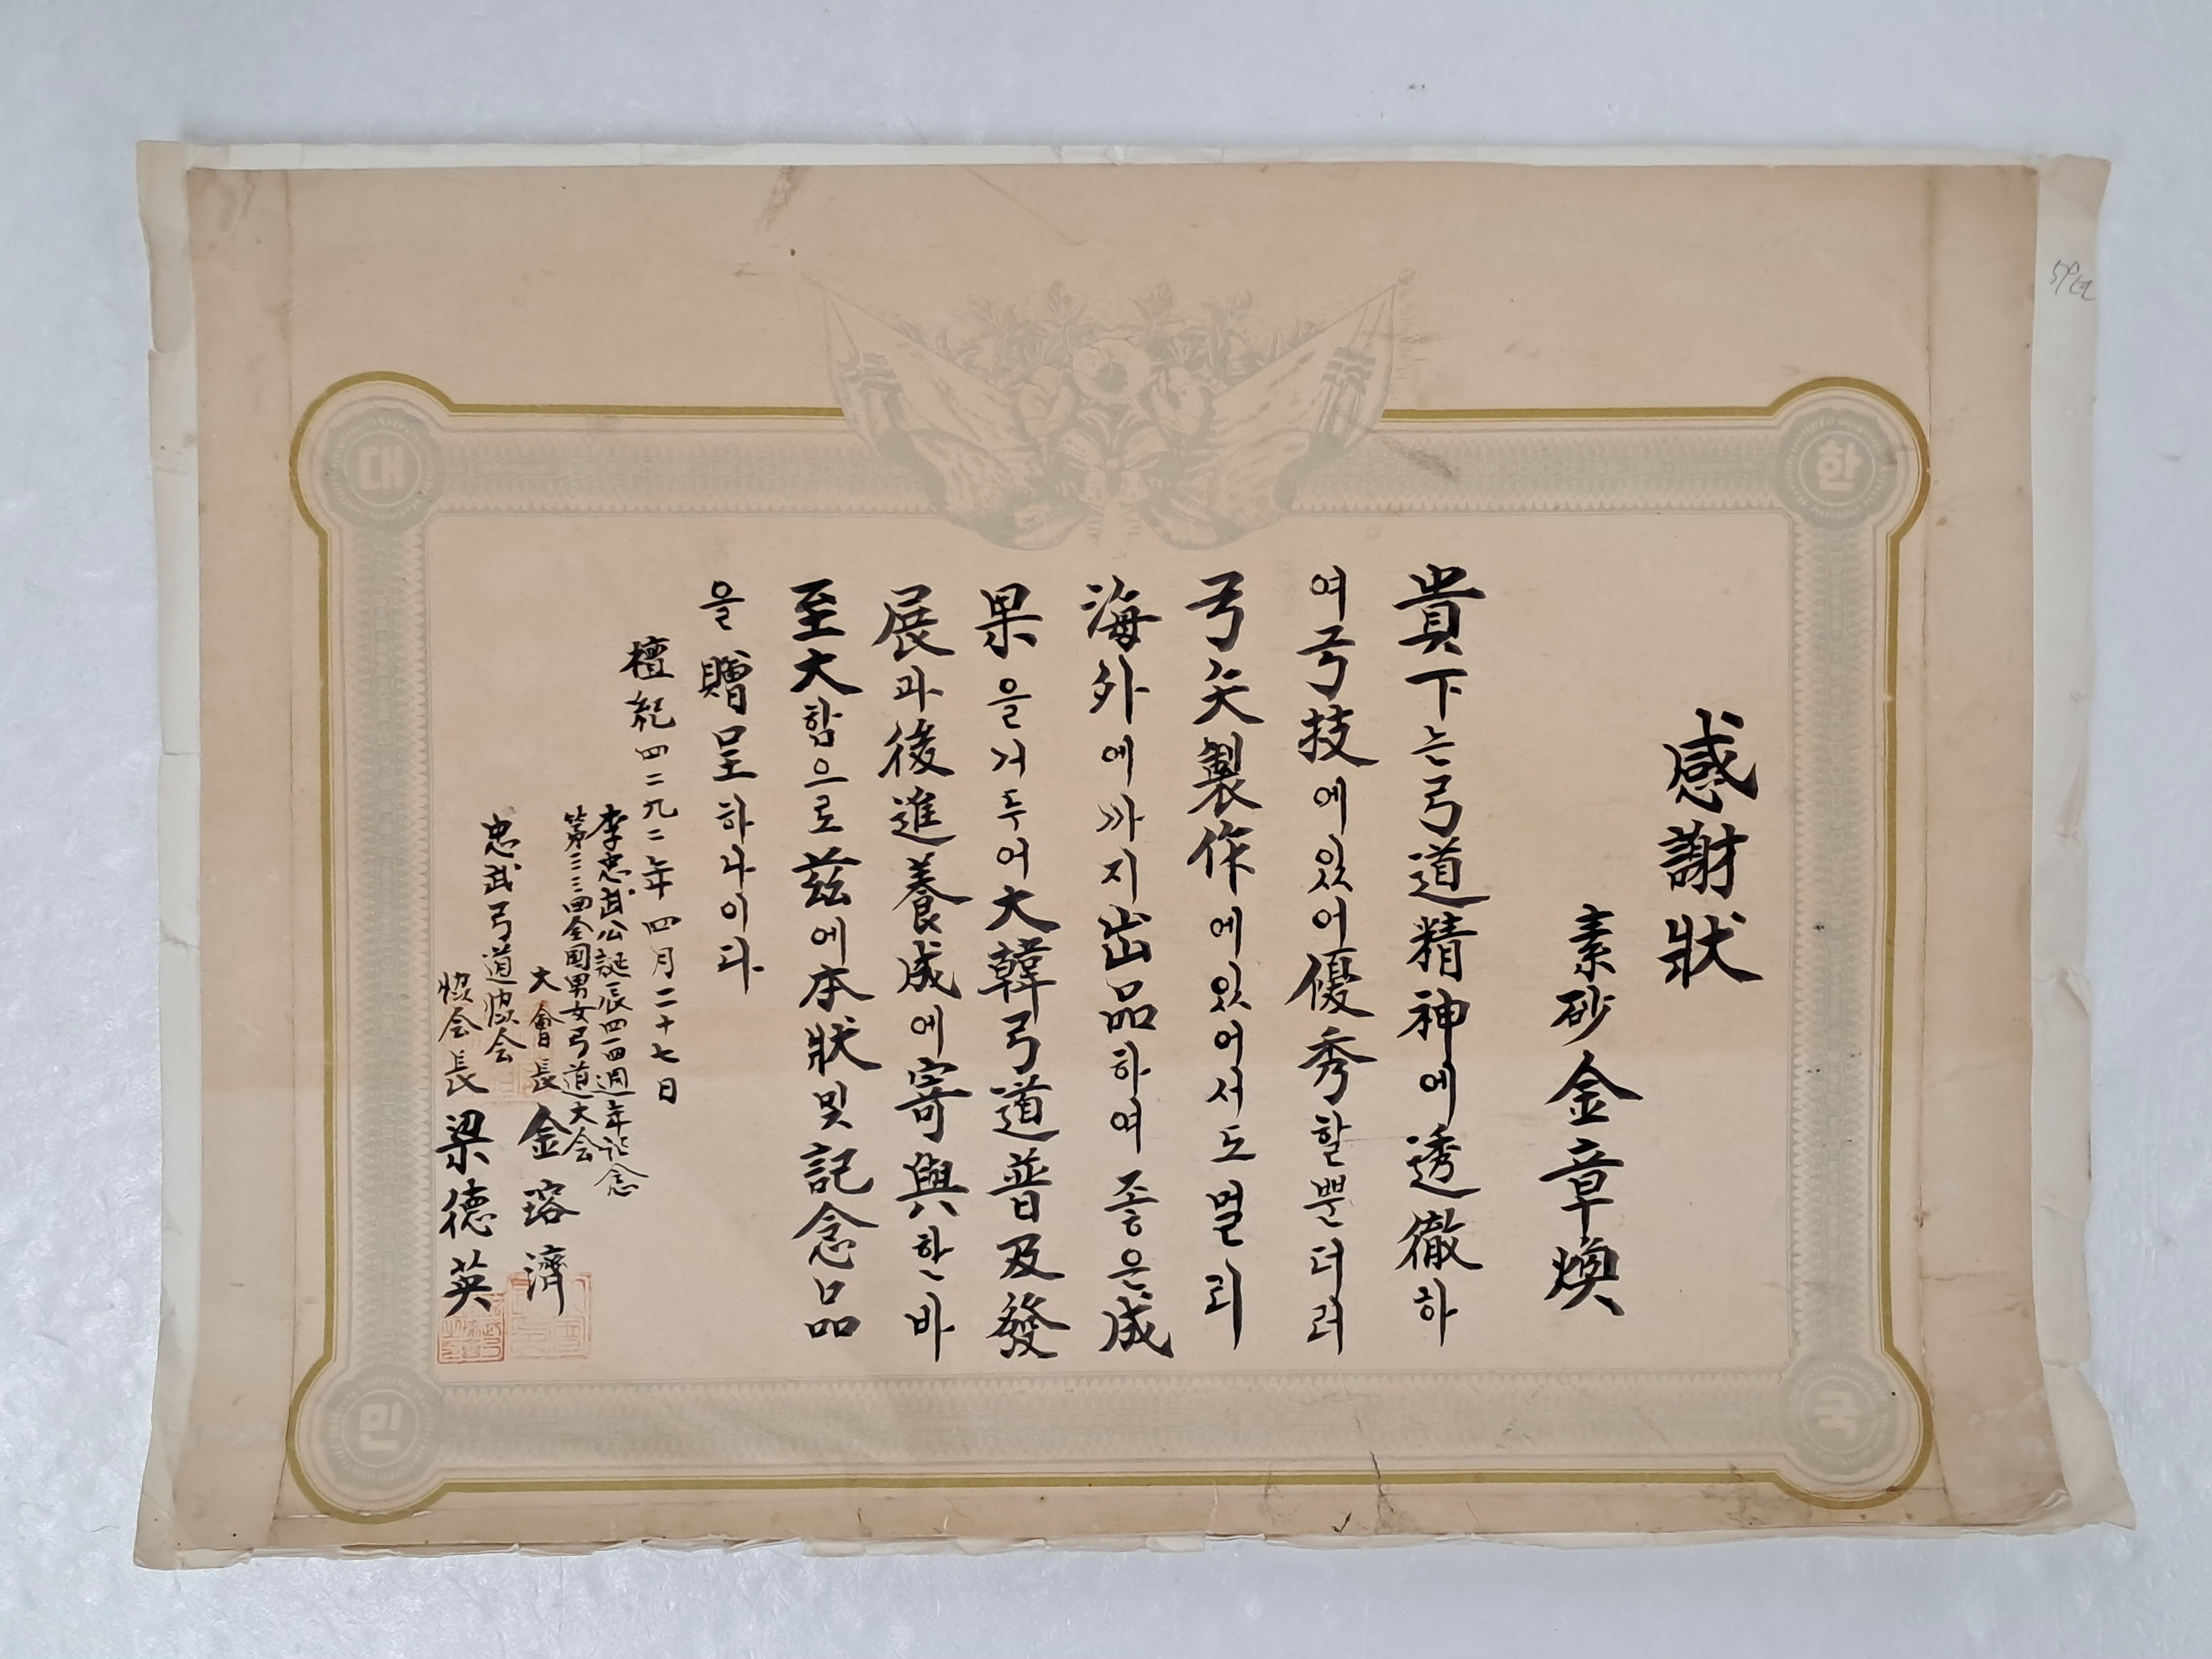 感謝狀
素砂 金章煥
貴下는弓道精神에透徹하
여弓技에있어優秀할뿐더러
弓矢製作에있어서도멀리
海外에까지出品하여좋은成
果을거두어大韓弓道普及發
展과後進養成에寄與한바
至大함으로玆에本狀및記念品
을贈呈하나이다
檀紀四二九二年四月二十七日
李忠武公誕辰四一四週年記念
第三三四全國男女弓道大会
大會長 金瑢濟
忠武弓道協会
協会長 梁德英
대
한
민
국